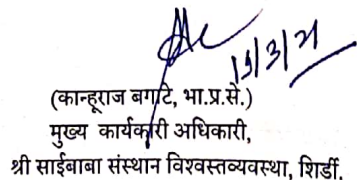 (कान्हूराज बगाटे, भा.प्र.से.)
मुख्य कार्यकारी अधिकारी,
श्री साईबाबा संस्थान विश्वस्तव्यवस्था, शिर्डी.